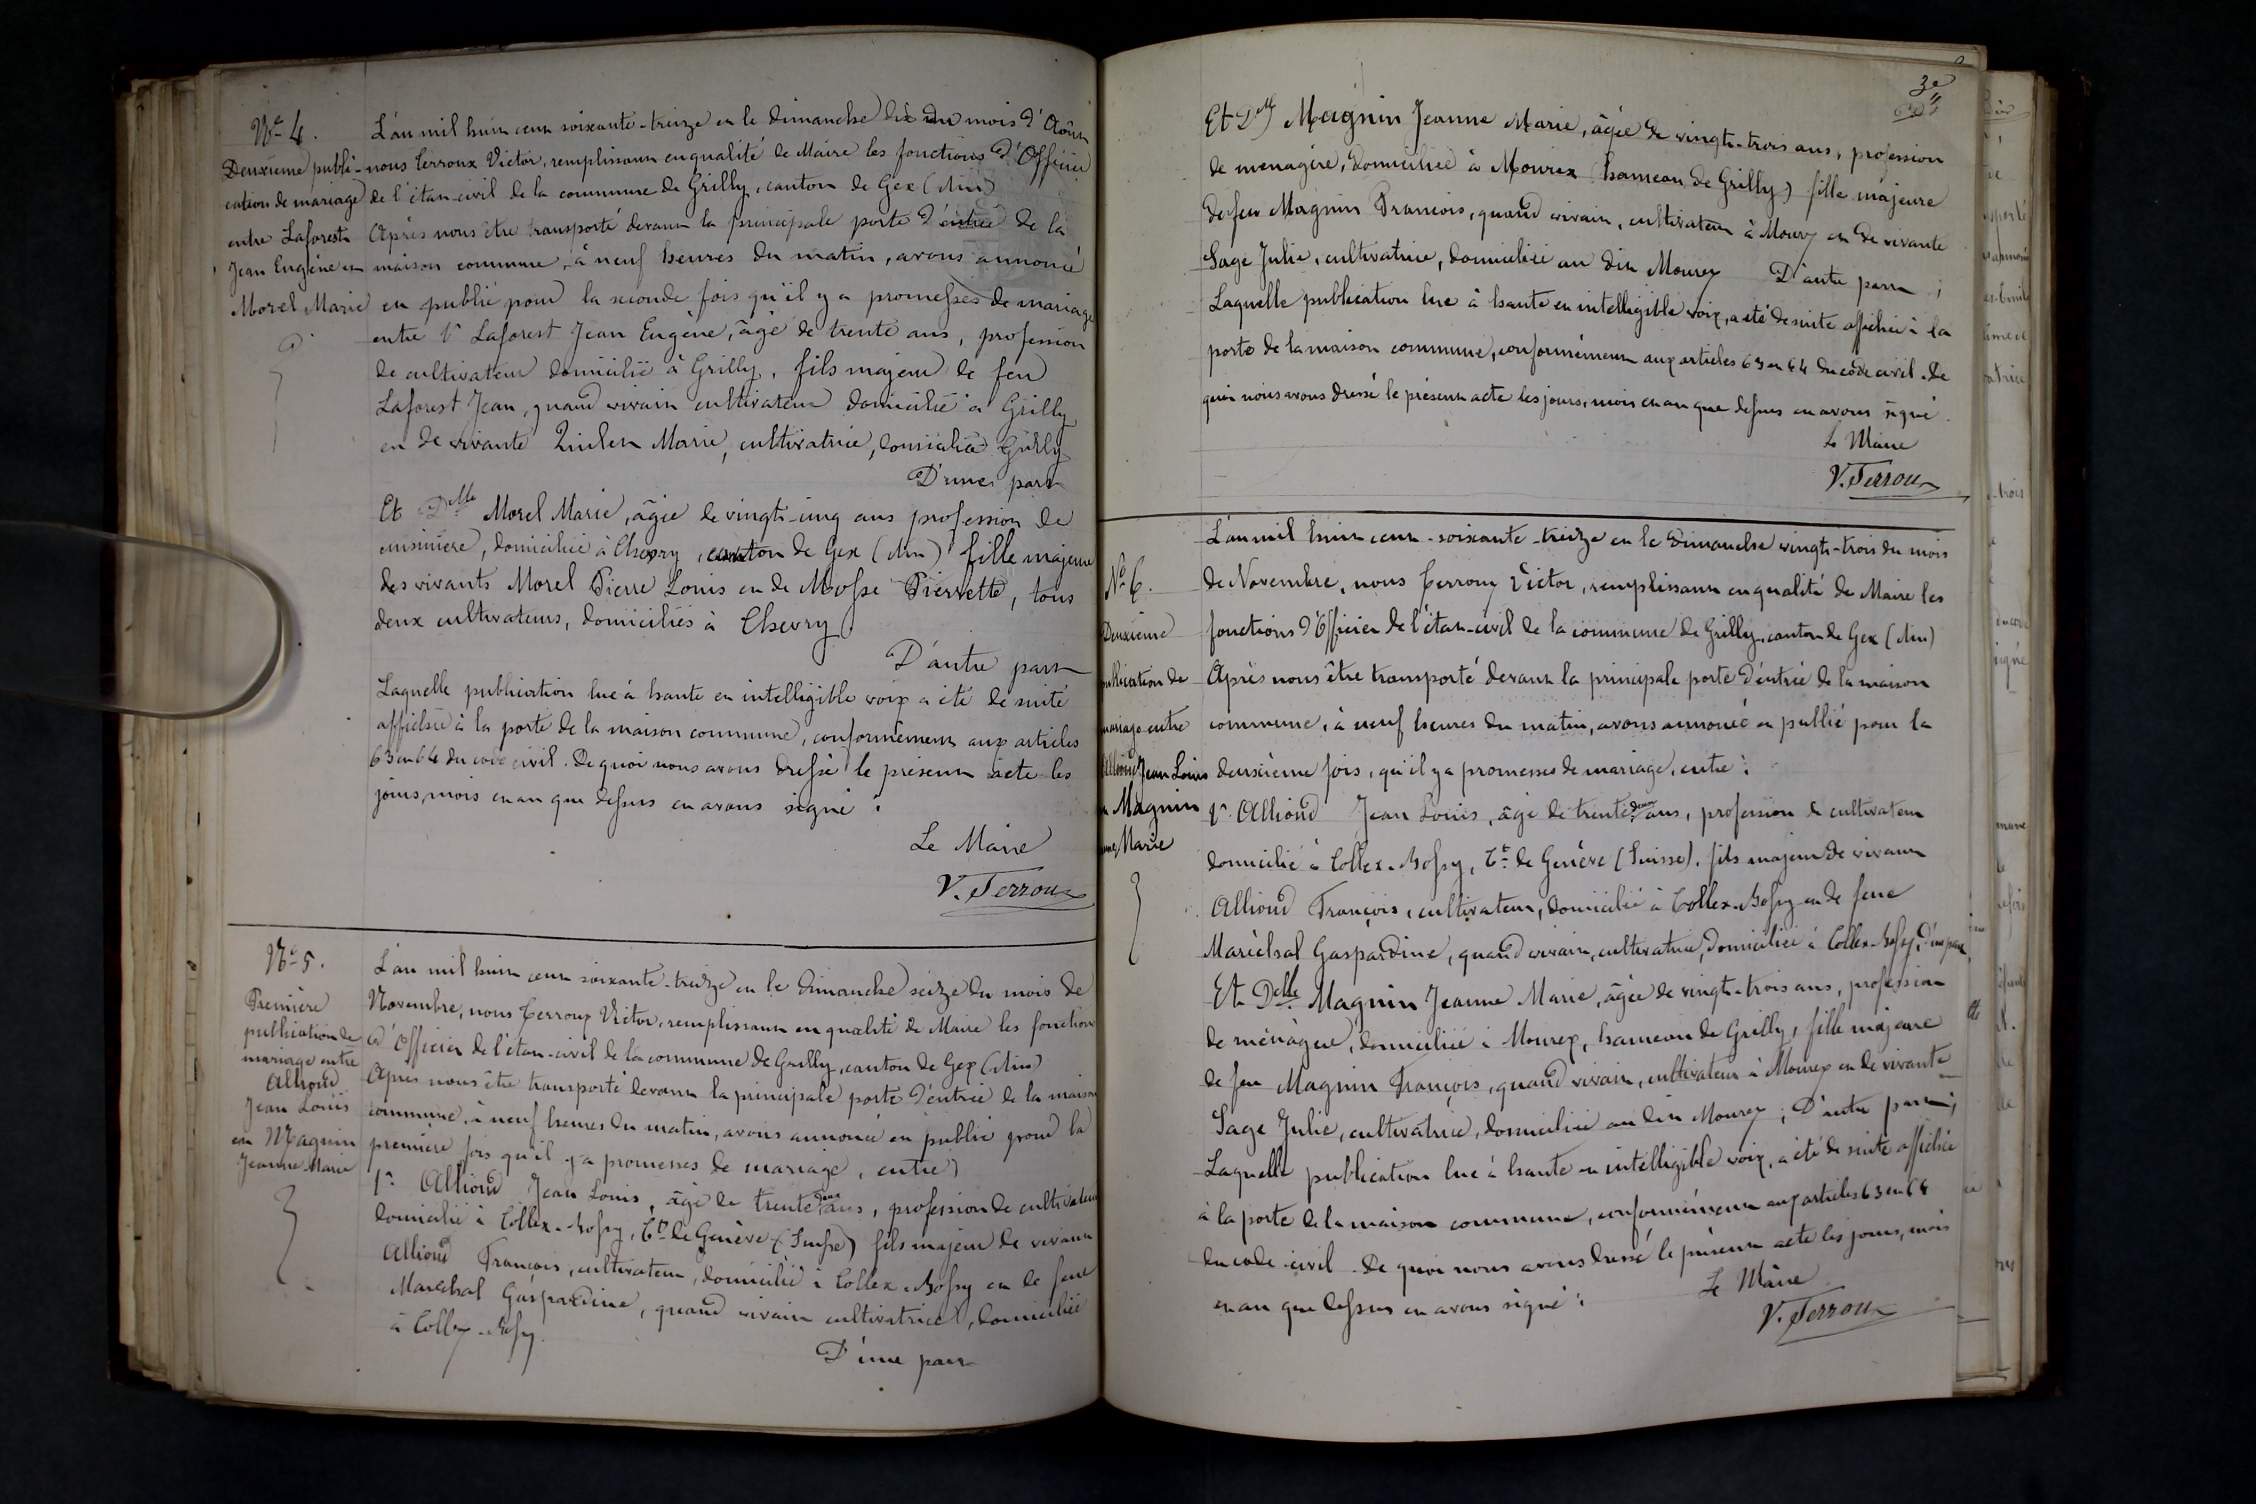 No 4.
Deuxième publi-
cation de mariage
entre Laforest
Jean Eugène et
Morel Marie
L'an mil huit cent soixante-treize et le dimanche dix du mois d'Août
nous Terroux Victor, remplissant en qualité de Maire les fonctions d'Officier
de l'état-civil de la commune de Grilly, canton de Gex (Ain)
Après nous être transporté devant la principale porte d'entrée de la
maison commune, à neuf heures du matin, avons annoncé
et publié pour la seconde fois qu'il y a promesses de mariage
entre 1° Laforest Jean Eugène, âgé de trente ans, profession
de cultivateur domicilié à Grilly, fils majeur de feu
Laforest Jean, quand vivait cultivateur domicilié à Grilly
et de vivante Marie, cultivatrice, domiciliée Grilly
D'une part
Et Delle Morel Marie, âgée de vingt-cinq ans profession de
cuisinière, domiciliée à Chevry, canton de Gex (Ain) fille majeure
des vivants Morel Pierre Louis et de Mosse Pierrette, tous
deux cultivateurs, domiciliés à Chevry
D'autre part
Laquelle publication lue à haute et intelligible voix a été de suite
affichée à la porte de la maison commune, conformément aux articles
63 et 64 du code civil. De quoi nous avons dressé le présent acte les
jours, mois et an que dessus et avons signé :
Le Maire
V. Terroux
No 5.
Première
publication de
mariage entre
Allioud
Jean Louis
et Magnin
Jeanne Marie
L'an mil huit cent soixante-treize et le Dimanche seize du mois de
Novembre, nous Terroux Victor, remplissant en qualité de Maire les fonctions
d'Officier de l'état-civil de la commune de Grilly, canton de Gex (Ain)
Après nous être transporté devant la principale porte d'entrée de la maison
commune, à neuf heures du matin, avons annoncé et publié pour la
première fois qu'il y a promesses de mariage, entre
1° Allioud Jean Louis, âgé de trente deux ans, profession de cultivateur
domicilié à Collex-Bossy, Cton de Genève (Suisse) fils majeur de vivant
Allioud François, cultivateur, domicilié à Collex-Bossy et de feue
Maréchal Gaspardine, quand vivait cultivatrice, domiciliée
à Collex-Bossy.
D'une part
3e
Et Delle Magnin Jeanne Marie, âgée de vingt-trois ans, profession
de ménagère, domiciliée à Mourex (hameau de Grilly) fille majeure
de feu Magnin François, quand vivait, cultivateur à Mourex et de vivante
Sage Julie, cultivatrice, domiciliée au dit Mourex D'autre part ;
Laquelle publication lue à haute et intelligible voix, a été de suite affichée à la
porte de la maison commune, conformément aux articles 63 et 64 du code civil. De
quoi nous avons dressé le présent acte les jours, mois et an que dessus et avons signé.
Le Maire
V. Terroux
No 6.
Deuxième
publication de
mariage entre
Allioud Jean Louis
et Magnin
Jeanne Marie
L'an mil huit cent-soixante-treize et le Dimanche vingt-trois du mois
de Novembre, nous Terroux Victor, remplissant en qualité de Maire les
fonctions d'Officier de l'état-civil de la commune de Grilly, canton de Gex (Ain)
Après nous être transporté devant la principale porte d'entrée de la maison
commune, à neuf heures du matin, avons annoncé et publié pour la
deuxième fois, qu'il y a promesses de mariage, entre :
1° Allioud Jean Louis, âgé de trente deux ans, profession de cultivateur
domicilié à Collex-Bossy, Cton de Genève (Suisse). fils majeur de vivant
Allioud François, cultivateur, domicilié à Collex-Bossy et de feue
Maréchal Gaspardine, quand vivait, cultivatrice, domiciliée à Collex-Bossy, d'une part,
Et Delle Magnin Jeanne Marie, âgée de vingt-trois ans, profession
de ménagère, domiciliée à Mourex, hameau de Grilly, fille majeure
de feu Magnin François, quand vivait, cultivateur à Mourex et de vivante
Sage Julie, cultivatrice, domiciliée au dit Mourex ; D'autre part ;
Laquelle publication lue à haute et intelligible voix, a été de suite affichée
à la porte de la maison commune, conformément aux articles 63 et 64
du code civil. De quoi nous avons dressé le présent acte les jours, mois
et an que dessus et avons signé :
Le Maire
V. Terroux